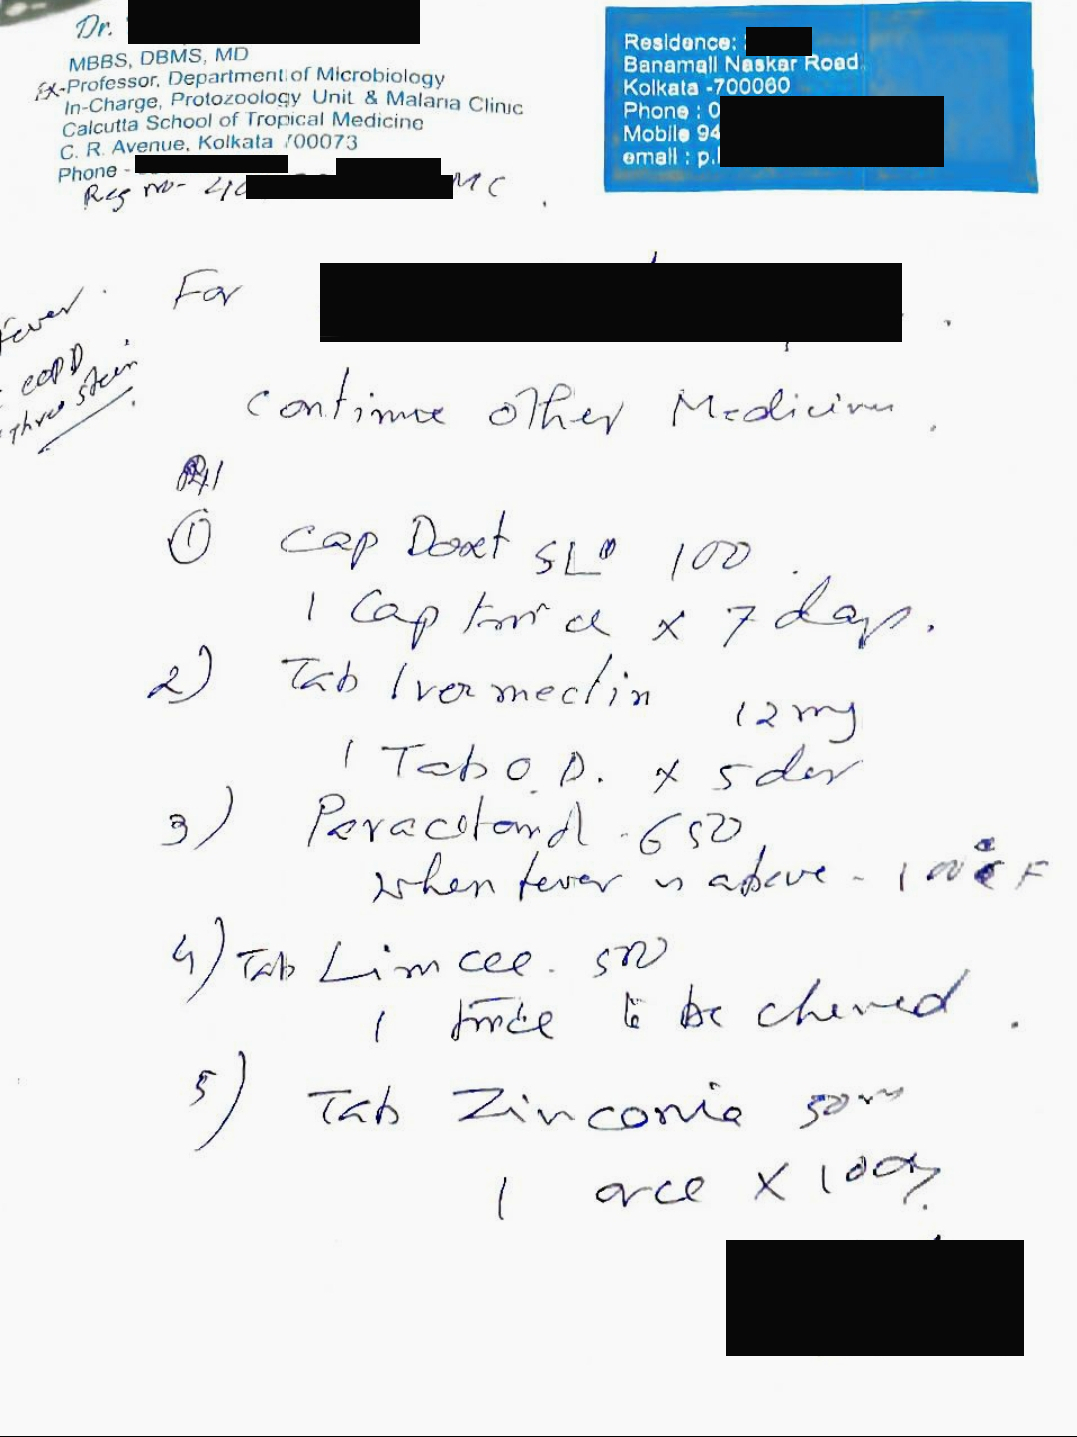 Dr.
MBBS, DBMS, MD
Ex-Professor, Department of Microbiology
In-Charge, Protozoology Unit & Malaria Clinic
Calcutta School of Tropical Medicine
C. R. Avenue, Kolkata 700073
Phone -
Reg no- 40 MC
Residence:
Banamali Naskar Road
Kolkata -700060
Phone : 0
Mobile 94
email : p.
For
Fever.
COPD
continue other Medicine.
1 Cap Doxt SL 100
1 Cap twice x 7 days.
2) Tab Ivermectin 12mg
1 Tab O.D. x 5 day
3) Paracetamol 650
when fever is above - 100°F
4) Tab Limcee. 500
1 twice to be chewed.
5) Tab Zinconia 50m
1 once x 10 day